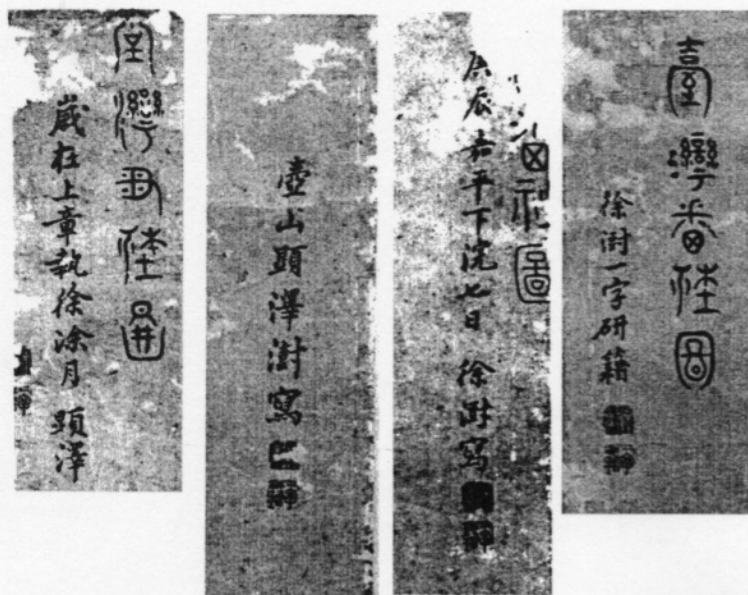 臺灣番社圖
徐澍一字研籍
社圖
庚辰嘉平下浣七日 徐澍寫
壺山顕澤澍寫
臺灣番社圖
歲在上章執徐涂月 顕澤